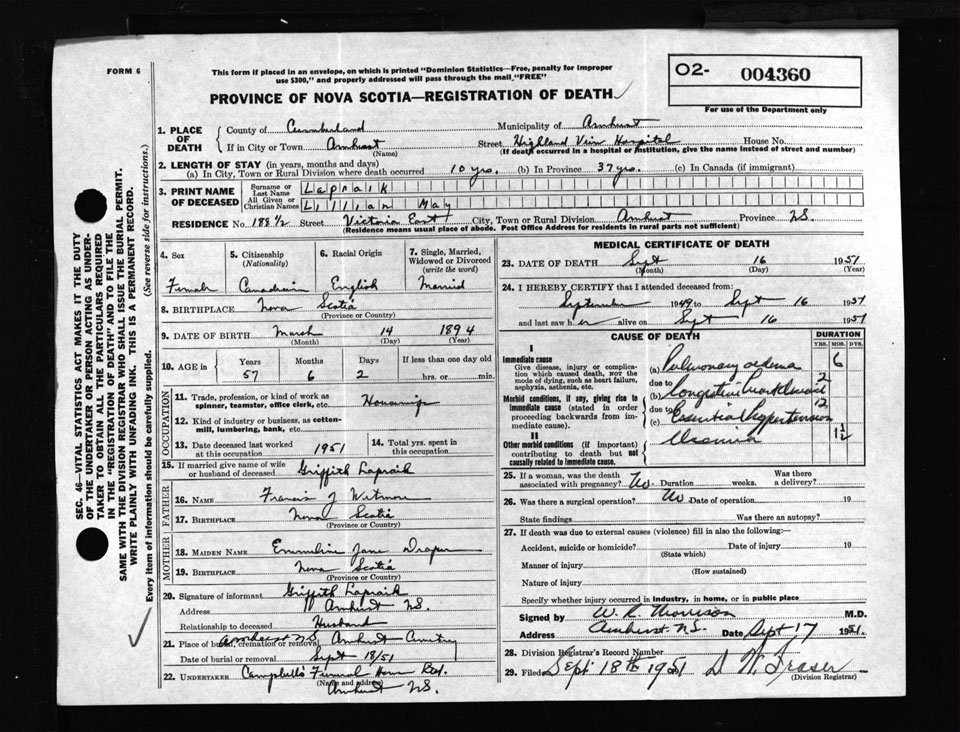 FORM 6
This form if placed in an envelope, on which is printed "Dominion Statistics—Free, penalty for improper
use $300," and properly addressed will pass through the mail "FREE"
PROVINCE OF NOVA SCOTIA—REGISTRATION OF DEATH
O2- 004360
For use of the Department only
1. PLACE OF DEATH
County of Cumberland Municipality of Amherst
If in City or Town Amherst Street Highland View Hospital House No.
(Name) (If death occurred in a hospital or institution, give the name instead of street and number)
2. LENGTH OF STAY (in years, months and days)
(a) In City, Town or Rural Division where death occurred 10 yrs. (b) In Province 37 yrs. (c) In Canada (if immigrant)
3. PRINT NAME OF DECEASED
Surname or Last Name Lapraik
All Given or Christian Names Lillian May
RESIDENCE No. 188 1/2 Street Victoria East City, Town or Rural Division Amherst Province N.S.
(Residence means usual place of abode. Post Office Address for residents in rural parts not sufficient)
4. Sex 5. Citizenship (Nationality) 6. Racial Origin 7. Single, Married, Widowed or Divorced (write the word)
Female Canadian English Married
8. BIRTHPLACE Nova Scotia
(Province or Country)
9. DATE OF BIRTH March 14 1894
(Month) (Day) (Year)
10. AGE in Years Months Days If less than one day old
57 6 2 hrs. or min.
OCCUPATION
11. Trade, profession, or kind of work as
spinner, teamster, office clerk, etc.
12. Kind of industry or business, as cotton-
mill, lumbering, bank, etc.
13. Date deceased last worked
at this occupation 1951
14. Total yrs. spent in
this occupation
15. If married give name of wife
or husband of deceased Griffith Lapraik
FATHER
16. NAME Francis J
17. BIRTHPLACE Nova Scotia
(Province or Country)
MOTHER
18. MAIDEN NAME Emmline Jane Draper
19. BIRTHPLACE Nova Scotia
(Province or Country)
20. Signature of informant Griffith Lapraik
Address Amherst N.S.
Relationship to deceased Husband
21. Place of burial, cremation or removal Amherst N.S. Amherst
Date of burial or removal Sept 18/51
22. UNDERTAKER Campbell's Funeral Home
(Name and address) Amherst N.S.
MEDICAL CERTIFICATE OF DEATH
23. DATE OF DEATH Sept 16 1951
(Month) (Day) (Year)
24. I HEREBY CERTIFY that I attended deceased from:
September 1949 to Sept 16 1951
and last saw her alive on Sept 16 1951
CAUSE OF DEATH DURATION
YRS. MOS. DYS.
I
Immediate cause
Give disease, injury or complica-
tion which caused death, NOT the
mode of dying, such as heart failure,
asphyxia, asthenia, etc.
(a) Pulmonary edema 6
due to
Morbid conditions, if any, giving rise to
immediate cause (stated in order
proceeding backwards from im-
mediate cause).
(b) Congestive heart disease 2
due to
(c) Essential hypertension 12
II
Other morbid conditions (if important)
contributing to death but not
causally related to immediate cause.
Uremia 1 1/2
25. If a woman, was the death
associated with pregnancy? No Duration weeks. Was there a delivery?
26. Was there a surgical operation? No Date of operation 19
State findings Was there an autopsy?
27. If death was due to external causes (violence) fill in also the following:—
Accident, suicide or homicide? Date of injury 19
(State which)
Manner of injury
(How sustained)
Nature of injury
Specify whether injury occurred in industry, in home, or in public place
Signed by W. R. Morrison M.D.
Address Amherst N.S. Date Sept 17 1951.
28. Division Registrar's Record Number
29. Filed Sept 18th 1951 D W Fraser
(Division Registrar)
SEC. 46—VITAL STATISTICS ACT MAKES IT THE DUTY
OF THE UNDERTAKER OR PERSON ACTING AS UNDER-
TAKER TO OBTAIN ALL THE PARTICULARS REQUIRED
IN THE "REGISTRATION OF DEATH" AND TO FILE THE
SAME WITH THE DIVISION REGISTRAR WHO SHALL ISSUE THE BURIAL PERMIT.
WRITE PLAINLY WITH UNFADING INK. THIS IS A PERMANENT RECORD.
Every item of information should be carefully supplied. (See reverse side for instructions.)